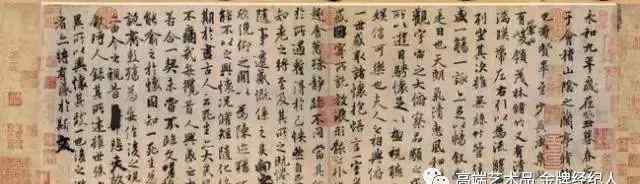 永和九年歲在癸丑暮春
于會稽山陰之蘭亭脩
也群賢畢至少長咸集
有崇山峻領茂林脩竹又有清
湍暎帶左右引以為流觴
列坐其次雖無絲竹管
盛一觴一詠亦足以暢敘
是日也天朗氣清惠風和
觀宇宙之大俯察品類之
所以遊目騁懷足以極視聽
娛信可樂也夫人之相與
一世或取諸懷抱悟言一室之
或因寄所託放浪形骸之外
趣舍萬殊靜躁不同當其
於所遇蹔得於己怏然自足
知老之將至及其所之既惓
隨事遷感慨係之矣向之
欣俛仰之間以為陳迹猶
能不以之興懷況脩短隨化
期於盡古人云死生亦大矣
不痛哉每攬昔人興感之
若合一契未嘗不臨文嗟悼
能喻之於懷固知一死生為
誕齊彭殤為妄作後之視
亦由今之視昔悲夫故
敘時人錄其所述雖世殊
異所以興懷其致一也後之
者亦將有感於斯文
高端艺术品 金牌经纪人